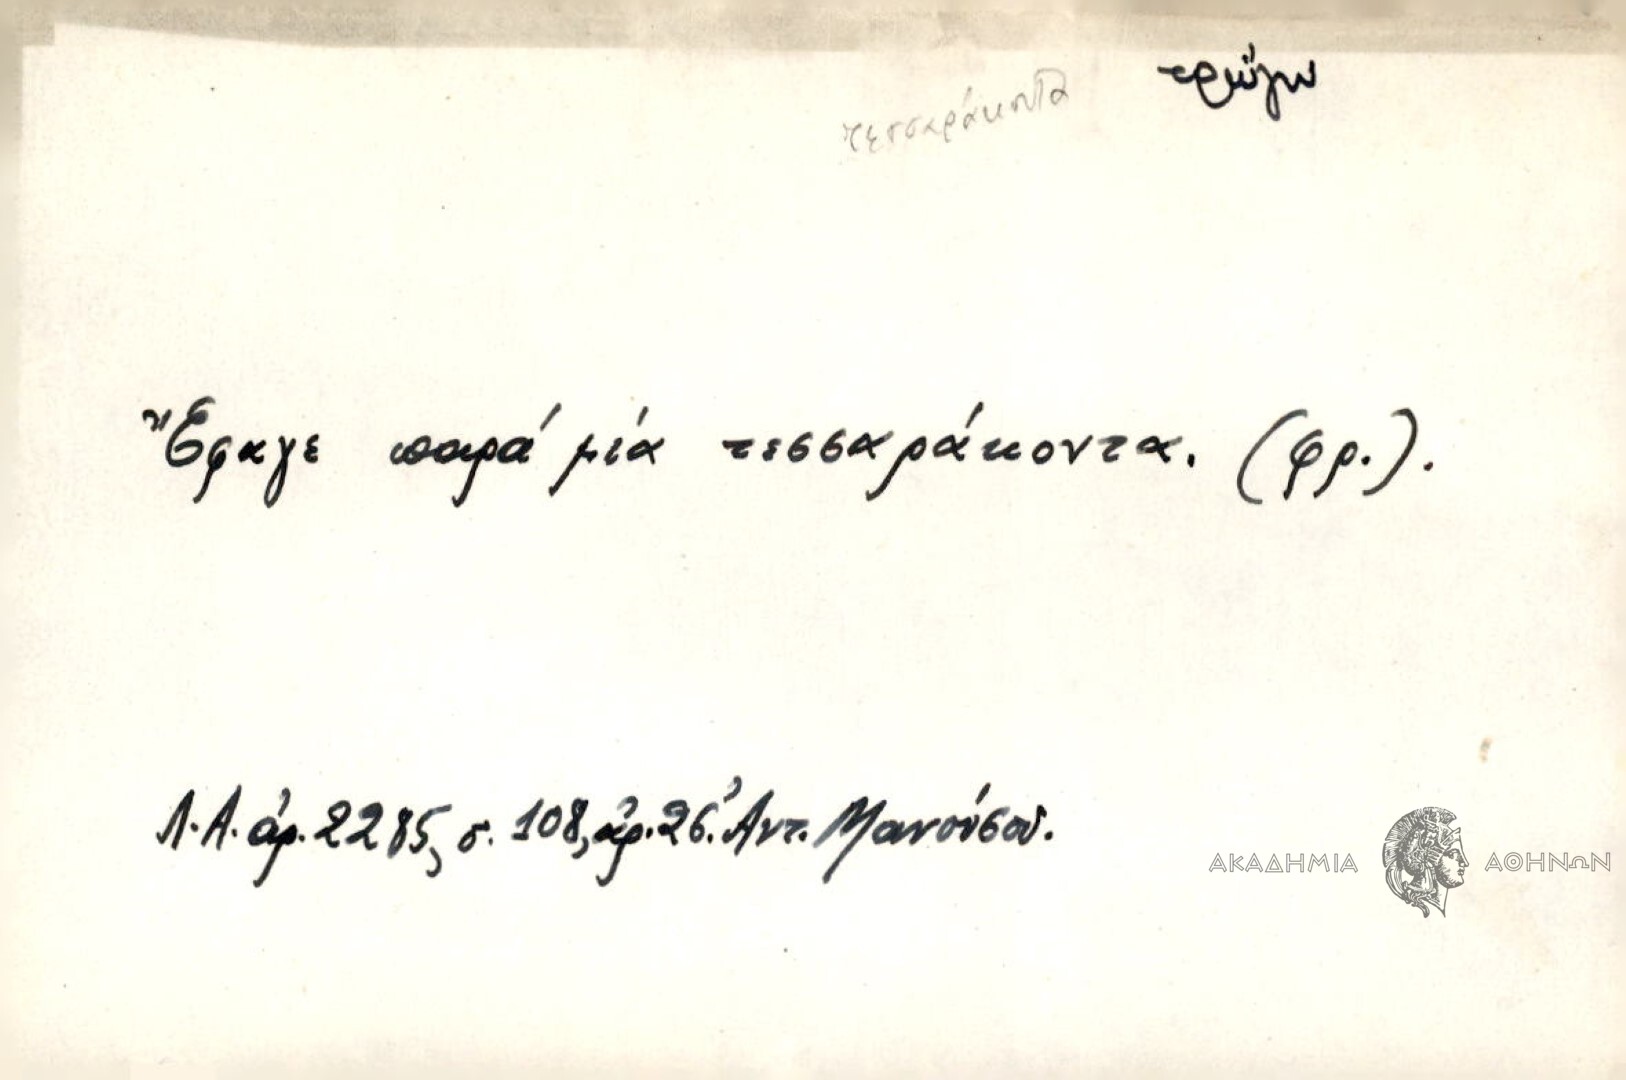 τρώγω
τεσσαράκοντα
Ἔφαγε παρά μία τεσσαράκοντα. (φρ.).
Λ.Α. ἀρ. 2285, σ. 108, ἀρ. 26. Ἀντ. Μανούσου.
ΑΚΑΔΗΜΙΑ ΑΘΗΝΩΝ